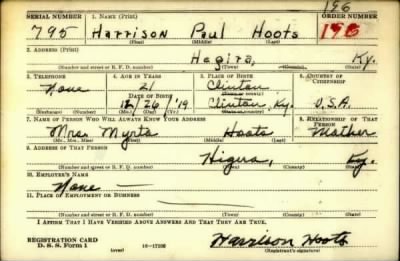 196
SERIAL NUMBER 1. NAME (Print) ORDER NUMBER
795 Harrison Paul Hoots 196
(First) (Middle) (Last)
2. ADDRESS (Print)
Hegira, Ky.
(Number and street or R. F. D. number) (Town) (County) (State)
3. TELEPHONE 4. AGE IN YEARS 5. PLACE OF BIRTH 6. COUNTRY OF CITIZENSHIP
None 21 Clinton
DATE OF BIRTH (Town or county)
12/26/'19 Clinton, Ky. U.S.A.
(Exchange) (Number) (Mo.) (Day) (Yr.) (State or country)
7. NAME OF PERSON WHO WILL ALWAYS KNOW YOUR ADDRESS 8. RELATIONSHIP OF THAT PERSON
Mrs. Myrta Hoots Mother
(Mr., Mrs., Miss) (First) (Middle) (Last)
9. ADDRESS OF THAT PERSON
Higira, Ky.
(Number and street or R. F. D. number) (Town) (County) (State)
10. EMPLOYER'S NAME
None —
11. PLACE OF EMPLOYMENT OR BUSINESS
(Number and street or R. F. D. number) (Town) (County) (State)
I AFFIRM THAT I HAVE VERIFIED ABOVE ANSWERS AND THAT THEY ARE TRUE.
REGISTRATION CARD
D. S. S. Form 1 (over) 16—17105 Harrison Hoots
(Registrant's signature)